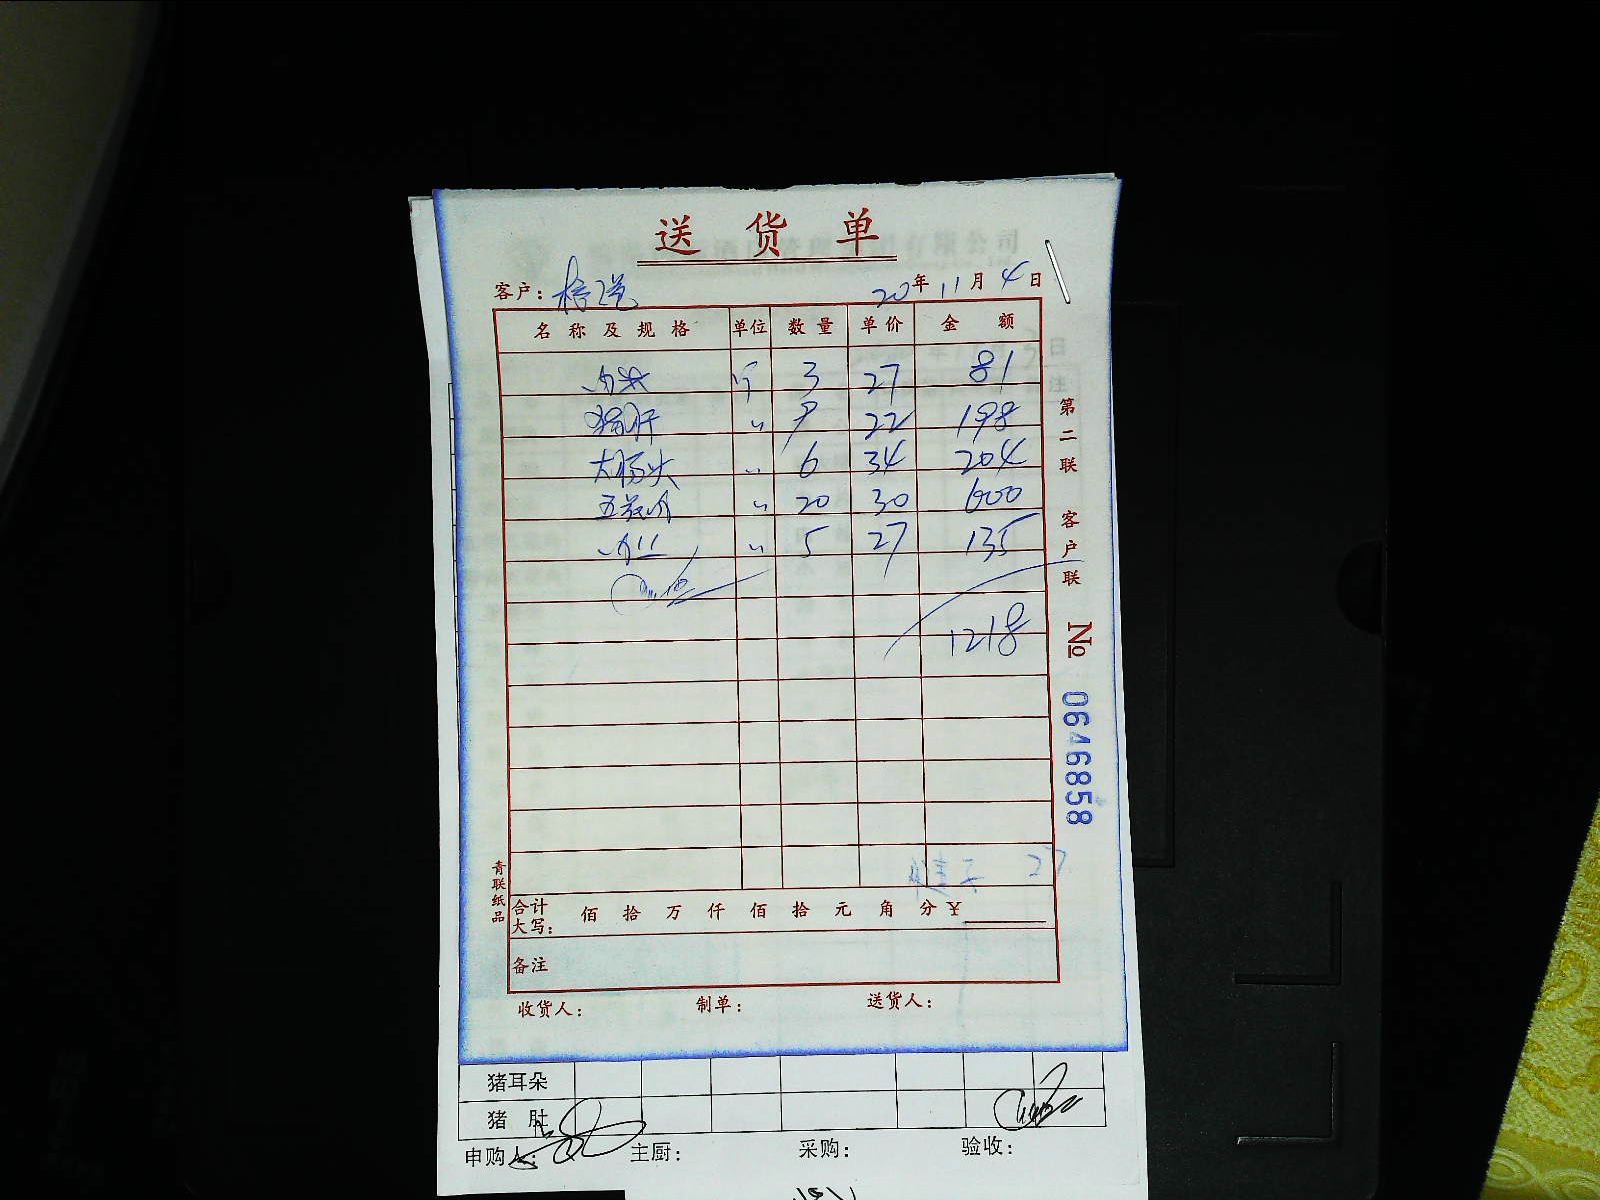 送货单
客户： 20年11月4日
名称及规格 单位 数量 单价 金额
斤 3 27 81
猪肝 〃 9 22 198
大肠头 〃 6 34 204
五花肉 〃 20 30 600
〃 5 27 135
1218
第二联 客户联
№ 0646858
27
青联纸品
合计大写： 佰 拾 万 仟 佰 拾 元 角 分 ¥
备注
收货人： 制单： 送货人：
猪耳朵
猪肚
申购人： 主厨： 采购： 验收：